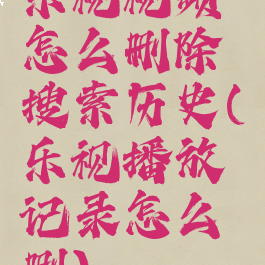 乐视视频
怎么删除
搜索历史(
乐视播放
记录怎么
删)